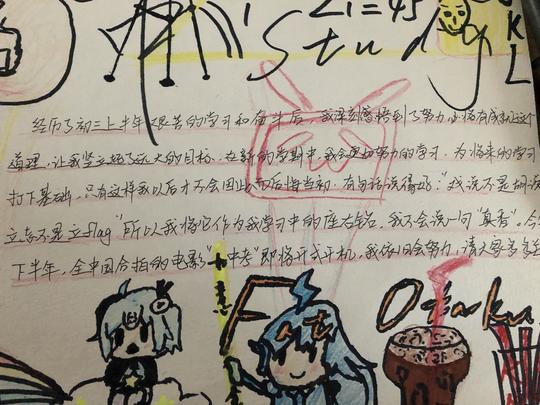 Study
∠1=45
K
L
经历了初三上半年艰苦的学习和奋斗后,我深刻感悟到了努力必将有成就这个
道理,让我坚立起了远大的目标,在新的学期中,我会更加努力的学习,为将来的学习
打下基础,只有这样我以后才不会因此而后悔当初,有句话说得好:"戏说不是胡说
立志不是立flag"所以我将它作为我学习中的座右铭,我不会说一句"真香",今
下半年,全中国合拍的电影"中考"即将开式开机,我依旧会努力,请大家多多
Otaku